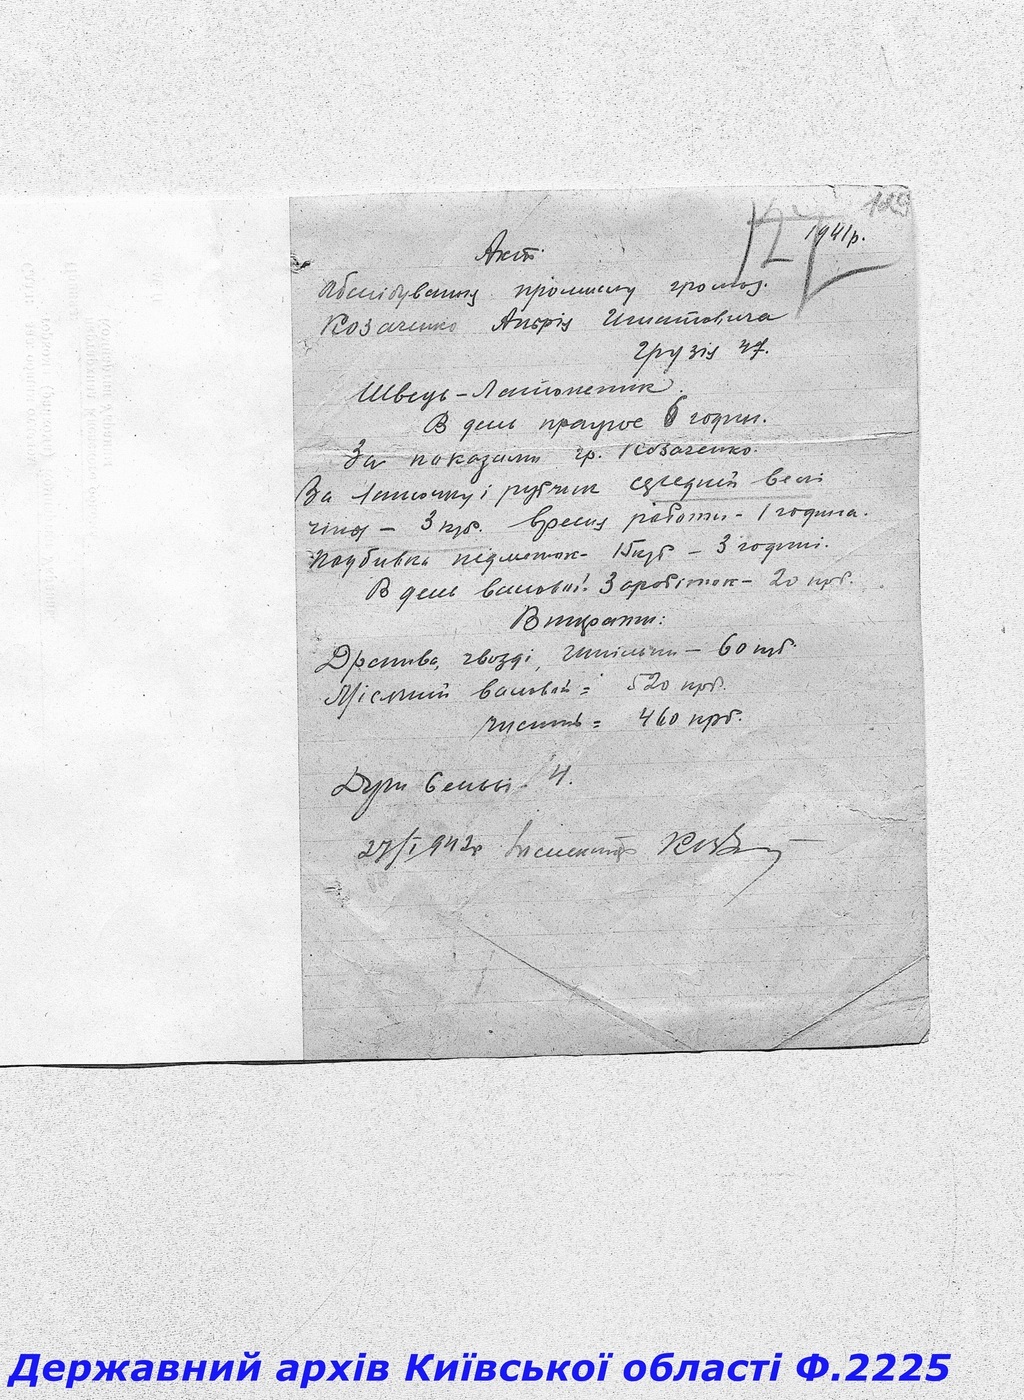 129
127
1941р.
Акт
Обслідування промислу громад.
Козаченко Андрія Игнатовича
Грузія 47.
Швець-Латошник.
В день працює 6 годин.
За показами гр. Козаченко.
За латочку і рубчик середній вели
чіни - 3 крб. время работи - 1 година.
Подбивка підметок - 15 крб - 3 годині.
В день валовий заробіток - 20 крб.
Витрати:
Дратва, гвозді, шпільки - 60 крб.
Місячний валовой = 520 крб.
чистий = 460 крб.
Душ семьї - 4.
27/I 1942р Інспектор
Державний архів Київської області Ф.2225